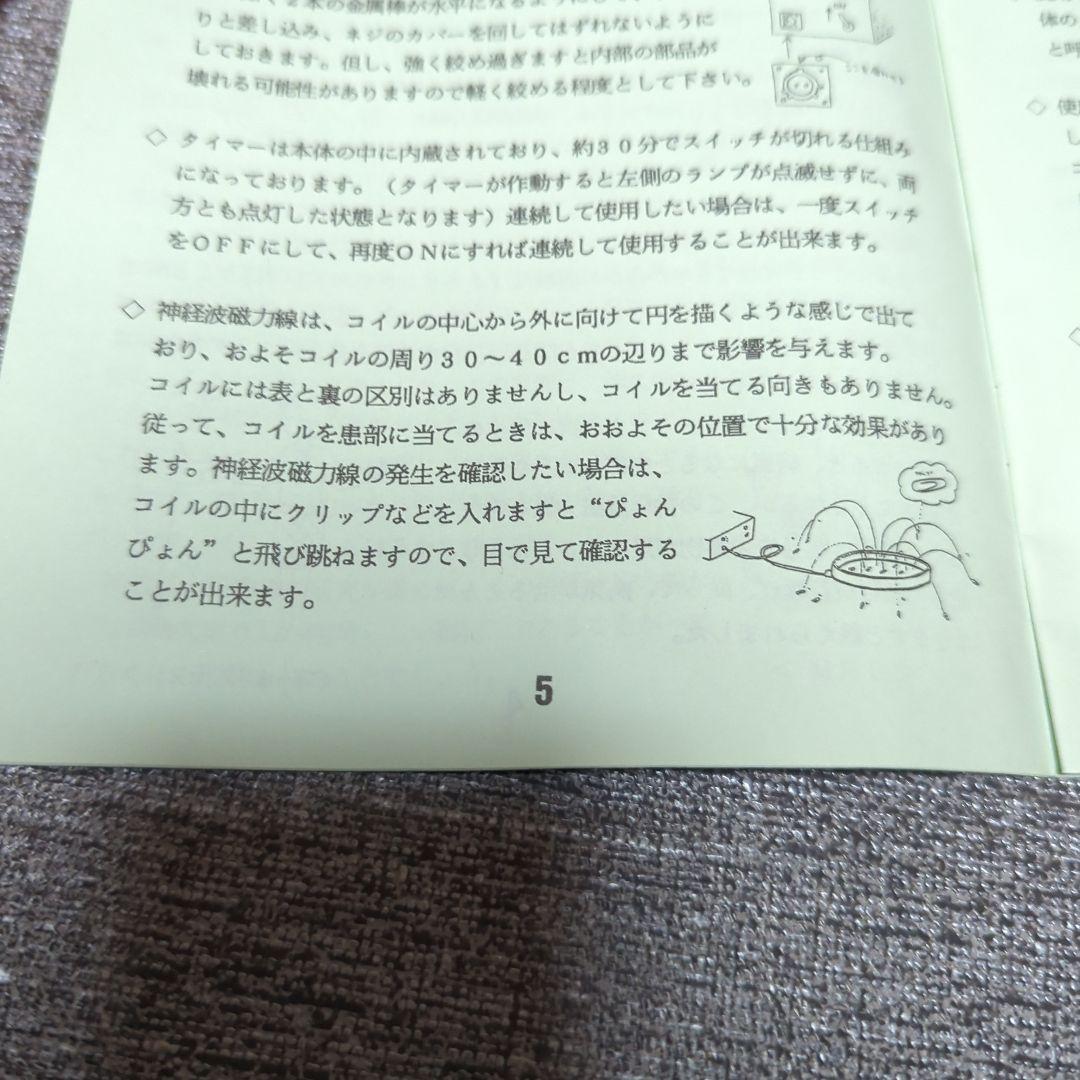 ２本の金属棒が水平になるように
りと差し込み、ネジのカバーを回してはずれないように
しておきます。但し、強く絞め過ぎますと内部の部品が
壊れる可能性がありますので軽く絞める程度として下さい。
◇ タイマーは本体の中に内蔵されており、約３０分でスイッチが切れる仕組み
になっております。（タイマーが作動すると左側のランプが点滅せずに、両
方とも点灯した状態となります）連続して使用したい場合は、一度スイッチ
をＯＦＦにして、再度ＯＮにすれば連続して使用することが出来ます。
◇ 神経波磁力線は、コイルの中心から外に向けて円を描くような感じで出て
おり、およそコイルの周り３０～４０ｃｍの辺りまで影響を与えます。
コイルには表と裏の区別はありませんし、コイルを当てる向きもありません。
従って、コイルを患部に当てるときは、おおよその位置で十分な効果があり
ます。神経波磁力線の発生を確認したい場合は、
コイルの中にクリップなどを入れますと“ぴょん
ぴょん”と飛び跳ねますので、目で見て確認する
ことが出来ます。
5
体の
と呼
◇ 使
し